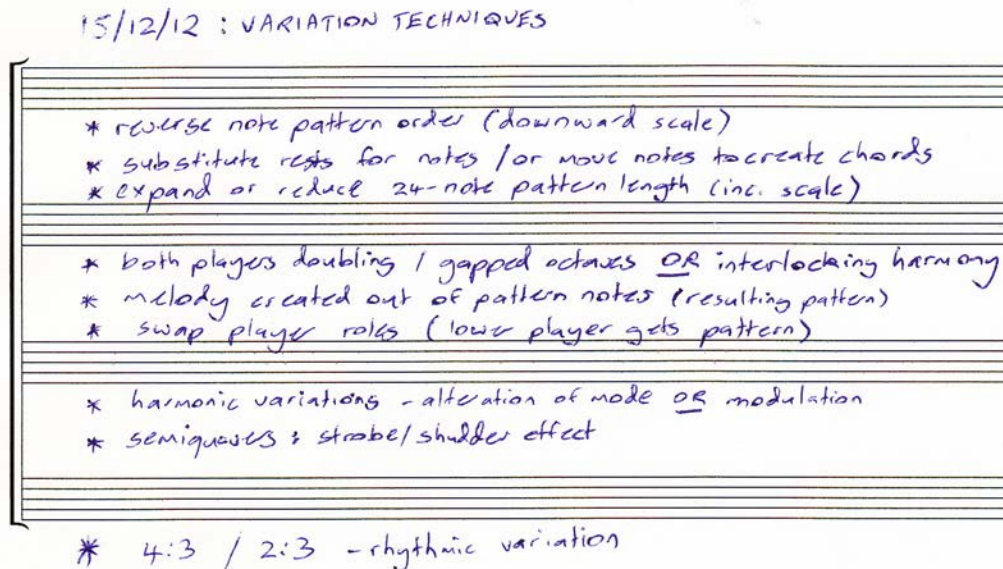 15/12/12 : VARIATION TECHNIQUES
* reverse note pattern order (downward scale)
* substitute rests for notes / or move notes to create chords
* expand or reduce 24-note pattern length (inc. scale)
* both players doubling / gapped octaves OR interlocking harmony
* melody created out of pattern notes (resulting pattern)
* swap player roles (lower player gets pattern)
* harmonic variations - alteration of mode OR modulation
* semiquavers : strobe/shudder effect
* 4:3 / 2:3 - rhythmic variation